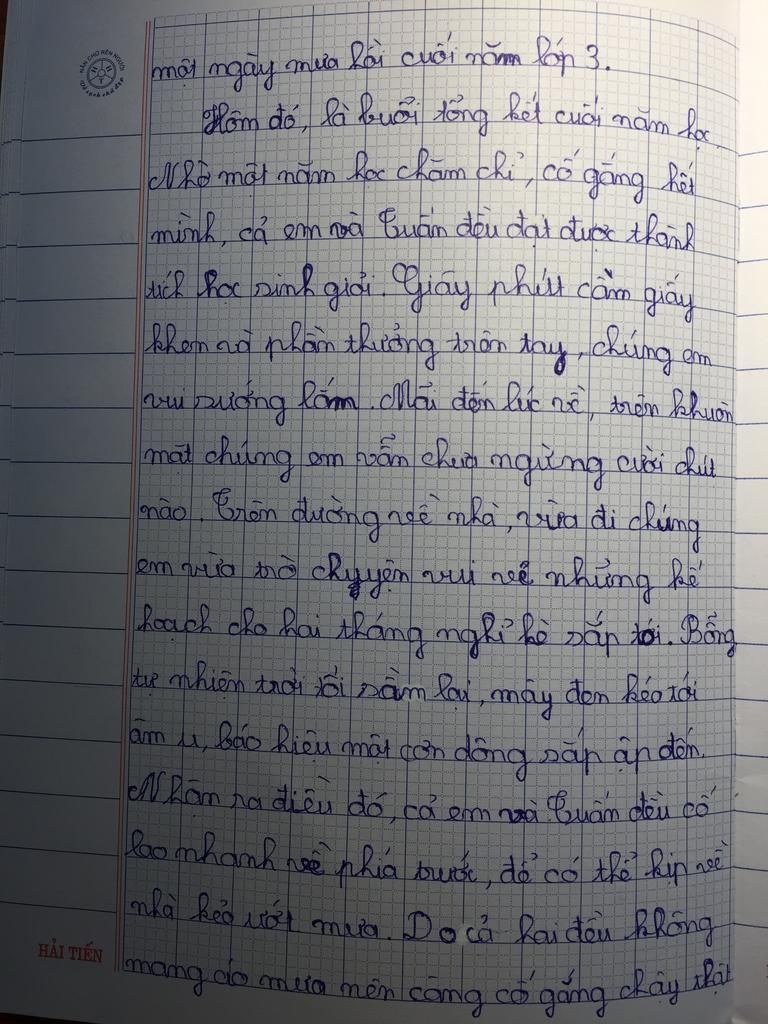 NẮN CHỮ RÈN NGƯỜI
một ngày mưa hồi cuối năm lớp 3.
Hôm đó, là buổi tổng kết cuối năm học.
Nhờ một năm học chăm chỉ, cố gắng hết
mình, cả em và Tuấn đều đạt được thành
tích học sinh giỏi. Giây phút cầm giấy
khen và phần thưởng trên tay, chúng em
vui sướng lắm. Mãi đến lúc về, trên khuôn
mặt chúng em vẫn chưa ngừng cười chút
nào. Trên đường về nhà, vừa đi chúng
em vừa trò chuyện vui về những kế
hoạch cho hai tháng nghỉ hè sắp tới. Bỗng
tự nhiên trời tối sầm lại, mây đen kéo tới
âm u, báo hiệu một cơn dông sắp ập đến.
Nhận ra điều đó, cả em và Tuấn đều cố
lao nhanh về phía trước, để có thể kịp về
nhà kẻo ướt mưa. Do cả hai đều không
mang áo mưa nên càng cố gắng chạy thật
HẢI TIẾN